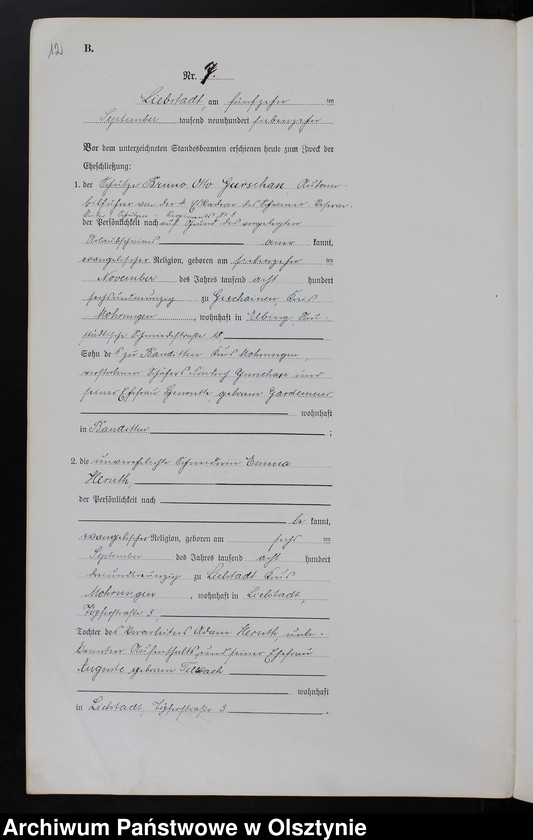 12
B.
Nr. 7.
Liebstadt, am fünfzehn ten
September tausend neunhundert siebenzehn
Vor dem unterzeichneten Standesbeamten erschienen heute zum Zweck der
Eheschließung:
1. der Schütze Bruno Otto Gurschan
von der 4. Eskadron des
Schützen Regiments N
der Persönlichkeit nach auf Grund des vorgelegten
Urlaubscheins aner kannt,
evangelischer Religion, geboren am siebenzehn ten
November des Jahres tausend acht hundert
sechsundneunzig zu Kreis
Mohrungen, wohnhaft in Elbing Neu-
städtische Schmiedestraße 18
Sohn des zu Banditten Kreis Mohrungen,
verstorbenen Schäfers Gurschan und
seiner Ehefrau Henriette, geborene
wohnhaft
in Banditten ;
2. die unverehelichte Schneiderin Emma
Hernth,
der Persönlichkeit nach
be kannt,
evangelischer Religion, geboren am sechs ten
September des Jahres tausend acht hundert
dreiundneunzig zu Liebstadt Kreis
Mohrungen, wohnhaft in Liebstadt,
Töpferstraße 3,
Tochter des Adam Hernth, unbe-
kannten Aufenthalts und seiner Ehefrau
Auguste geborene
wohnhaft
in Liebstadt, Töpferstraße 3.
Archiwum Państwowe w Olsztynie